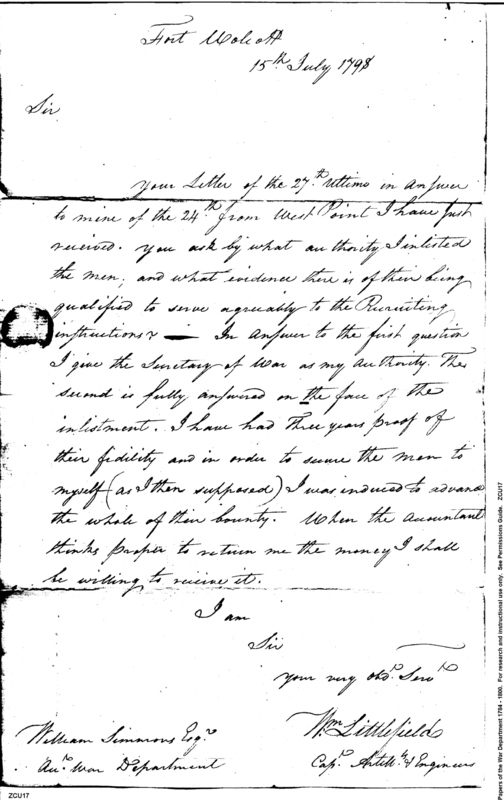 Fort Wolcott
15th July 1798
Sir
your Letter of the 27th Ultimo in Answer
to mine of the 24th from West Point I have just
received. you ask by what authority I inlisted
the men; and what evidence there is of their being
qualified to serve agreuably to the Recruiting
instructions? — In Answer to the first question
I give the Secretary of War as my Authority. The
second is fully answered on the face of the
inlistment. I have had Three years proof of
their fidility and in order to secure the men to
myself (as I then supposed) I was induced to advance
the whole of their bounty. When the Acountant
thinks proper to return me the money I shall
be willing to reciive it.
I am
Sir
your very obdt. Servt
Wm Littlefield
Capt. Artill. & Engineers
William Simmons Esqr.
Act. War Department
ZCU17
Papers of the War Department 1784 - 1800. For research and instructional use only. See Permissions Guide. ZCU17